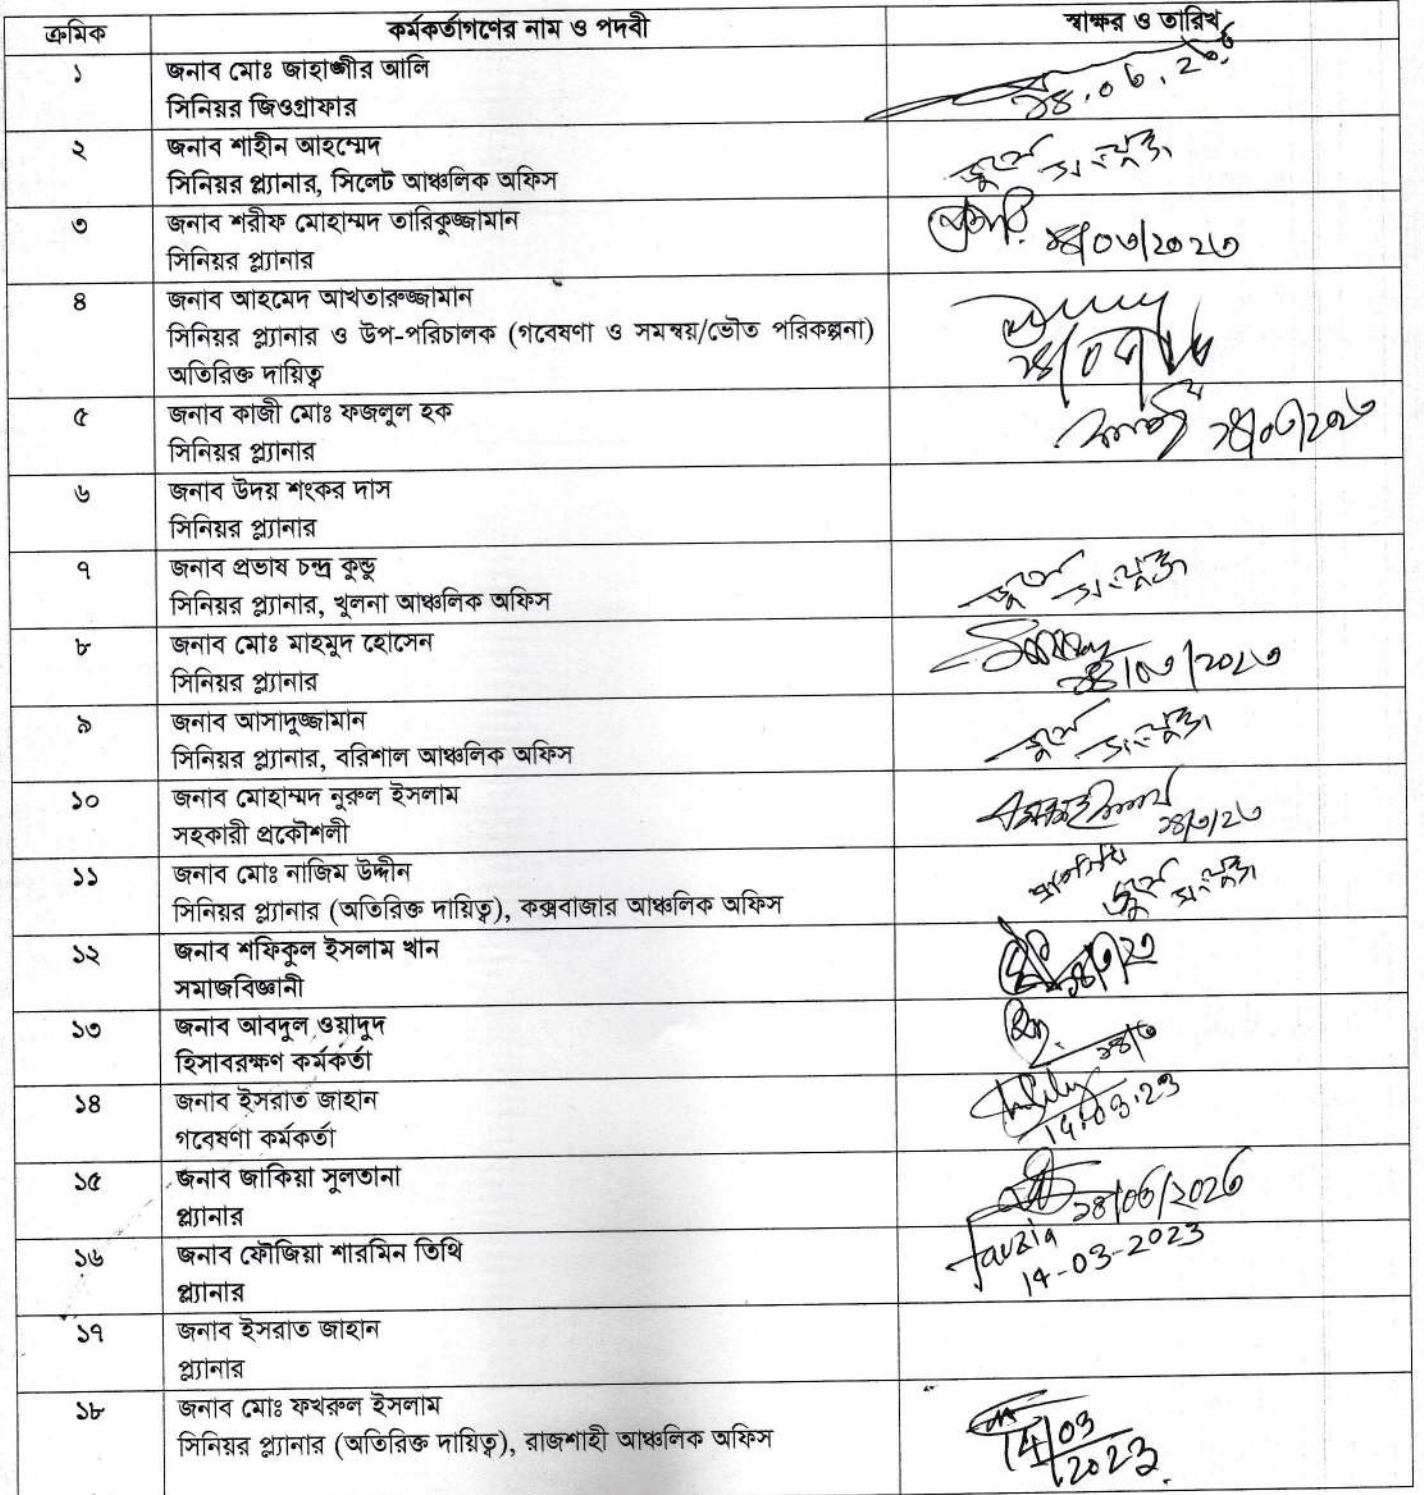 ক্রমিক কর্মকর্তাগণের নাম ও পদবী স্বাক্ষর ও তারিখ
১ জনাব মোঃ জাহাঙ্গীর আলি
সিনিয়র জিওগ্রাফার
২ জনাব শাহীন আহম্মেদ
সিনিয়র প্ল্যানার, সিলেট আঞ্চলিক অফিস
জুমে সংযুক্ত
৩ জনাব শরীফ মোহাম্মদ তারিকুজ্জামান
সিনিয়র প্ল্যানার
১৪/০৩/২০২৩
৪ জনাব আহমেদ আখতারুজ্জামান
সিনিয়র প্ল্যানার ও উপ-পরিচালক (গবেষণা ও সমন্বয়/ভৌত পরিকল্পনা)
অতিরিক্ত দায়িত্ব
৫ জনাব কাজী মোঃ ফজলুল হক
সিনিয়র প্ল্যানার
১৪/০৩/২০২৩
৬ জনাব উদয় শংকর দাস
সিনিয়র প্ল্যানার
৭ জনাব প্রভাষ চন্দ্র কুন্ডু
সিনিয়র প্ল্যানার, খুলনা আঞ্চলিক অফিস
জুমে সংযুক্ত
৮ জনাব মোঃ মাহমুদ হোসেন
সিনিয়র প্ল্যানার
১৪/০৩/২০২৩
৯ জনাব আসাদুজ্জামান
সিনিয়র প্ল্যানার, বরিশাল আঞ্চলিক অফিস
জুমে সংযুক্ত
১০ জনাব মোহাম্মদ নুরুল ইসলাম
সহকারী প্রকৌশলী
১৪/৩/২৩
১১ জনাব মোঃ নাজিম উদ্দীন
সিনিয়র প্ল্যানার (অতিরিক্ত দায়িত্ব), কক্সবাজার আঞ্চলিক অফিস
জুমে সংযুক্ত
১২ জনাব শফিকুল ইসলাম খান
সমাজবিজ্ঞানী
১৪/৩/২৩
১৩ জনাব আবদুল ওয়াদুদ
হিসাবরক্ষণ কর্মকর্তা
১৪/৩
১৪ জনাব ইসরাত জাহান
গবেষণা কর্মকর্তা
14.03.23
১৫ জনাব জাকিয়া সুলতানা
প্ল্যানার
১৪/০৩/২০২৩
১৬ জনাব ফৌজিয়া শারমিন তিথি
প্ল্যানার
Fauzia
14-03-2023
১৭ জনাব ইসরাত জাহান
প্ল্যানার
১৮ জনাব মোঃ ফখরুল ইসলাম
সিনিয়র প্ল্যানার (অতিরিক্ত দায়িত্ব), রাজশাহী আঞ্চলিক অফিস
14/03
2023